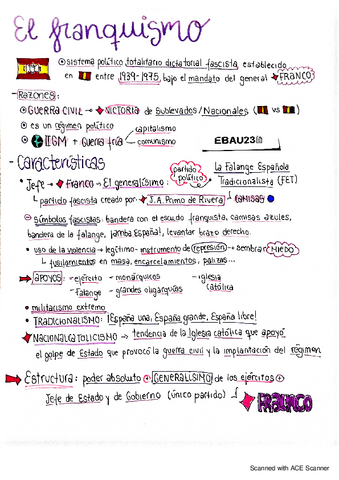 El franquismo
sistema político totalitario dictatorial fascista establecido
en entre 1939-1975, bajo el mandato del general FRANCO
- Razones:
GUERRA CIVIL → VICTORIA de sublevados/Nacionales ( vs )
es un régimen político
capitalismo
IIGM + Guerra fría
comunismo
EBAU23
- Características
partido político
La Falange Española
Tradicionalista (FET)
• Jefe → Franco → El generalísimo:
↳ partido fascista creado por J.A. Primo de Rivera camisas
Símbolos fascistas: bandera con el escudo franquista, camisas azules,
bandera de la falange, ¡arriba España!, levantar brazo derecho.
• uso de la violencia → legítimo- instrumento de represión → sembrar MIEDO
↳ fusilamientos en masa, encarcelamientos, palizas...
APOYOS: - ejército - monárquicos - iglesia
- Falange - grandes oligarquías católica
• militarismo extremo
• TRADICIONALISMO: ¡España una, España grande, España libre!
NACIONALCATOLICISMO → tendencia de la Iglesia católica que apoyó
el golpe de Estado que provocó la guerra civil y la implantación del régimen
Estructura: poder absoluto GENERALÍSIMO de los ejércitos
Jefe de Estado y de Gobierno (único partido)
FRANCO
Scanned with ACE Scanner